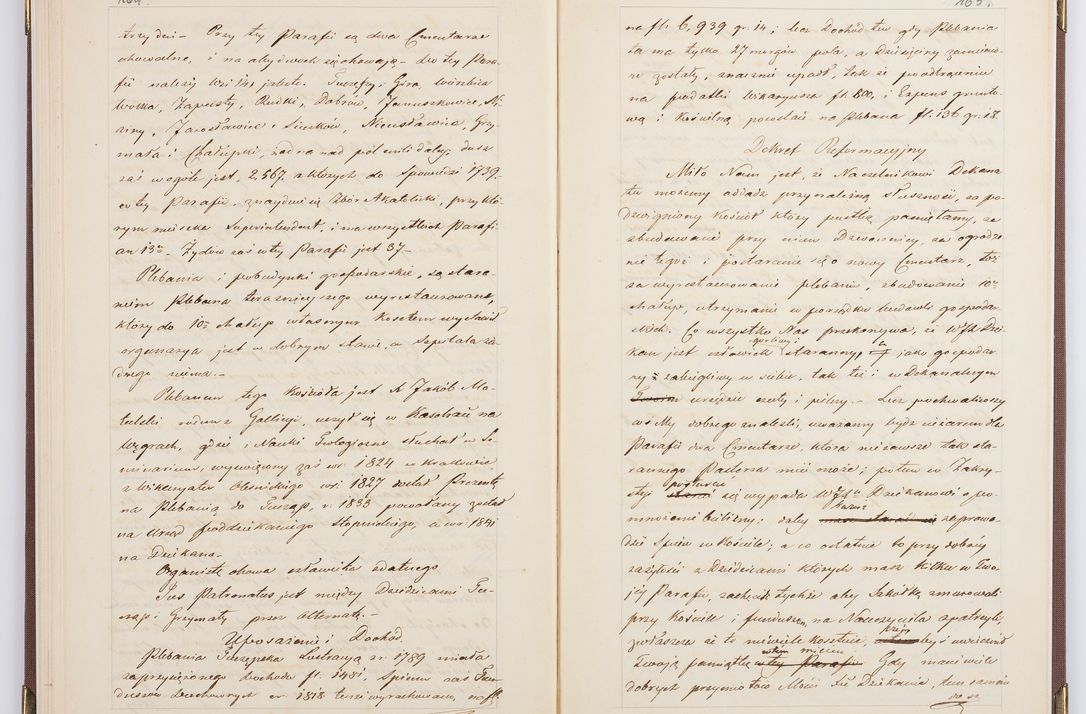 164.
trzy dni – Przy tey Parafii są dwa Cmentarze
obowalne, i na obydwóch się chowają – do tey Para-
fii należą wsi 14: jakoto: Tuczępy, Góra, 
Wolka, Zapusty, Rudki, Dobrów, Januszkowice, Ni-
ziny, Jarosławice, Sieczków, Nieciesławice, Grzy-
mała i Chałupki, żadna nad pół mili daley, dusz
zaś w ogóle jest 2,567. z których do spowiedzi 1739.
w tey Parafii znayduie się Zbór Akatolicki, przy któ-
rym mieszka Superintendent, i ma wszystkich Parafi-
an 13cu – Żydów zaś w tey Parafii jest 37.–
Plebania i pobudynki gospodarskie, są stara-
niem Plebana teraznieyszego wyrestaurowane,
który do 10u chałup własnym kosztem wystawił
organarya jest w dobrym stanie, a Szpitala ża-
dnego niema.–
Plebanem tego Kościoła jest X. Jakób Ma-
telski rodem z Gallicyi, uczył się w Kaschau na
Węgrach, gdzie i Nauki Teologiczne słuchał w Se-
minarium, wyświęcony zaś w r. 1824 w Krakowie,
z Wikaryatu Oleśnickiego w r: 1827 dostał Prezentę
na Plebanią do Tuczęp, r. 1833 powołany został
na Urząd Poddziekaniego Stopnickiego, a w r: 1841
na Dziekana.–
Organistę chowa człowieka zdatnego
Jus Patronatus jest między Dziedzicami Tu-
częp i Grzymały przez alternatę.–
Uposażenie i Dochód
Plebania Tuczępska Lustracyą r: 1789 miała
zaprzysiężonego Dochodu fl. 1481, Spisem zaś Fun-
duszów Duchownych w r. 1818 teraz wyrachowano, na fl.
165.
na fl. 6,939 gr. 14; lecz Dochód ten gdy Plebania
ta ma tylko 27 morgów pola, a Dziesięciny zamienio-
ne zostały, znacznie upadł, tak że po odtrąceniu
na podatki Wikaryusza fl. 800, i Expens grunto-
wą i Kościelną pozostaie na Plebana fl. 136 gr. 18.
Dekret Reformacyjny
Miło Nam jest, że Naczelnikowi Dekana-
tu możemy oddadź przynależną słuszność, za po-
dzwigniony Kościół który pustką pamiętamy, za
zbudowanie przy nim Dzwonnicy, za ogrodze-
nie tegoż i postaranie się o nowy Cmentarz, toż
za wyrestaurowanie plebanii, zbudowanie 10u
chałup, utrzymanie w porządku budowli gospodar-
skich. Co wszystko Nas przekonywa, iż WJX Dzie-
kan jest człowiek gorliwy staranny, a jako gospodar-
ny i zabiegliwy u siebie, tak też i w Dekanalnym
urzędzie czuły i pilny.– Lecz pochwaliwszy
cośmy dobrego znalezli, uważamy bydź nieraz dla
Parafii dwa Cmentarze, która niezawsze tak sta-
rannego Pasterza mieć może; potem w Zakry-
styi postarać się wypada WJXu Dziekanowi o po-
mnożenie bielizny; daley każesz zaprowa-
dzić Śpiew w Kościele; a co ostatnie to przy dobréy
zażyłości z Dziedzicami których masz kilku w Two-
jéy Parafii, zachęcić tychże aby Szkółkę zmurowali
przy Kościele i fundusz na Nauczyciela opatrzyli,
zwłaszcza że to niewiele kosztuie, przy i uwiecznił
Twoją pamiątkę w tém mieście w tey Parafii. Gdy masz wiele
dobrych przymiotów Mości Xże Dziekanie, ten samém
do sz